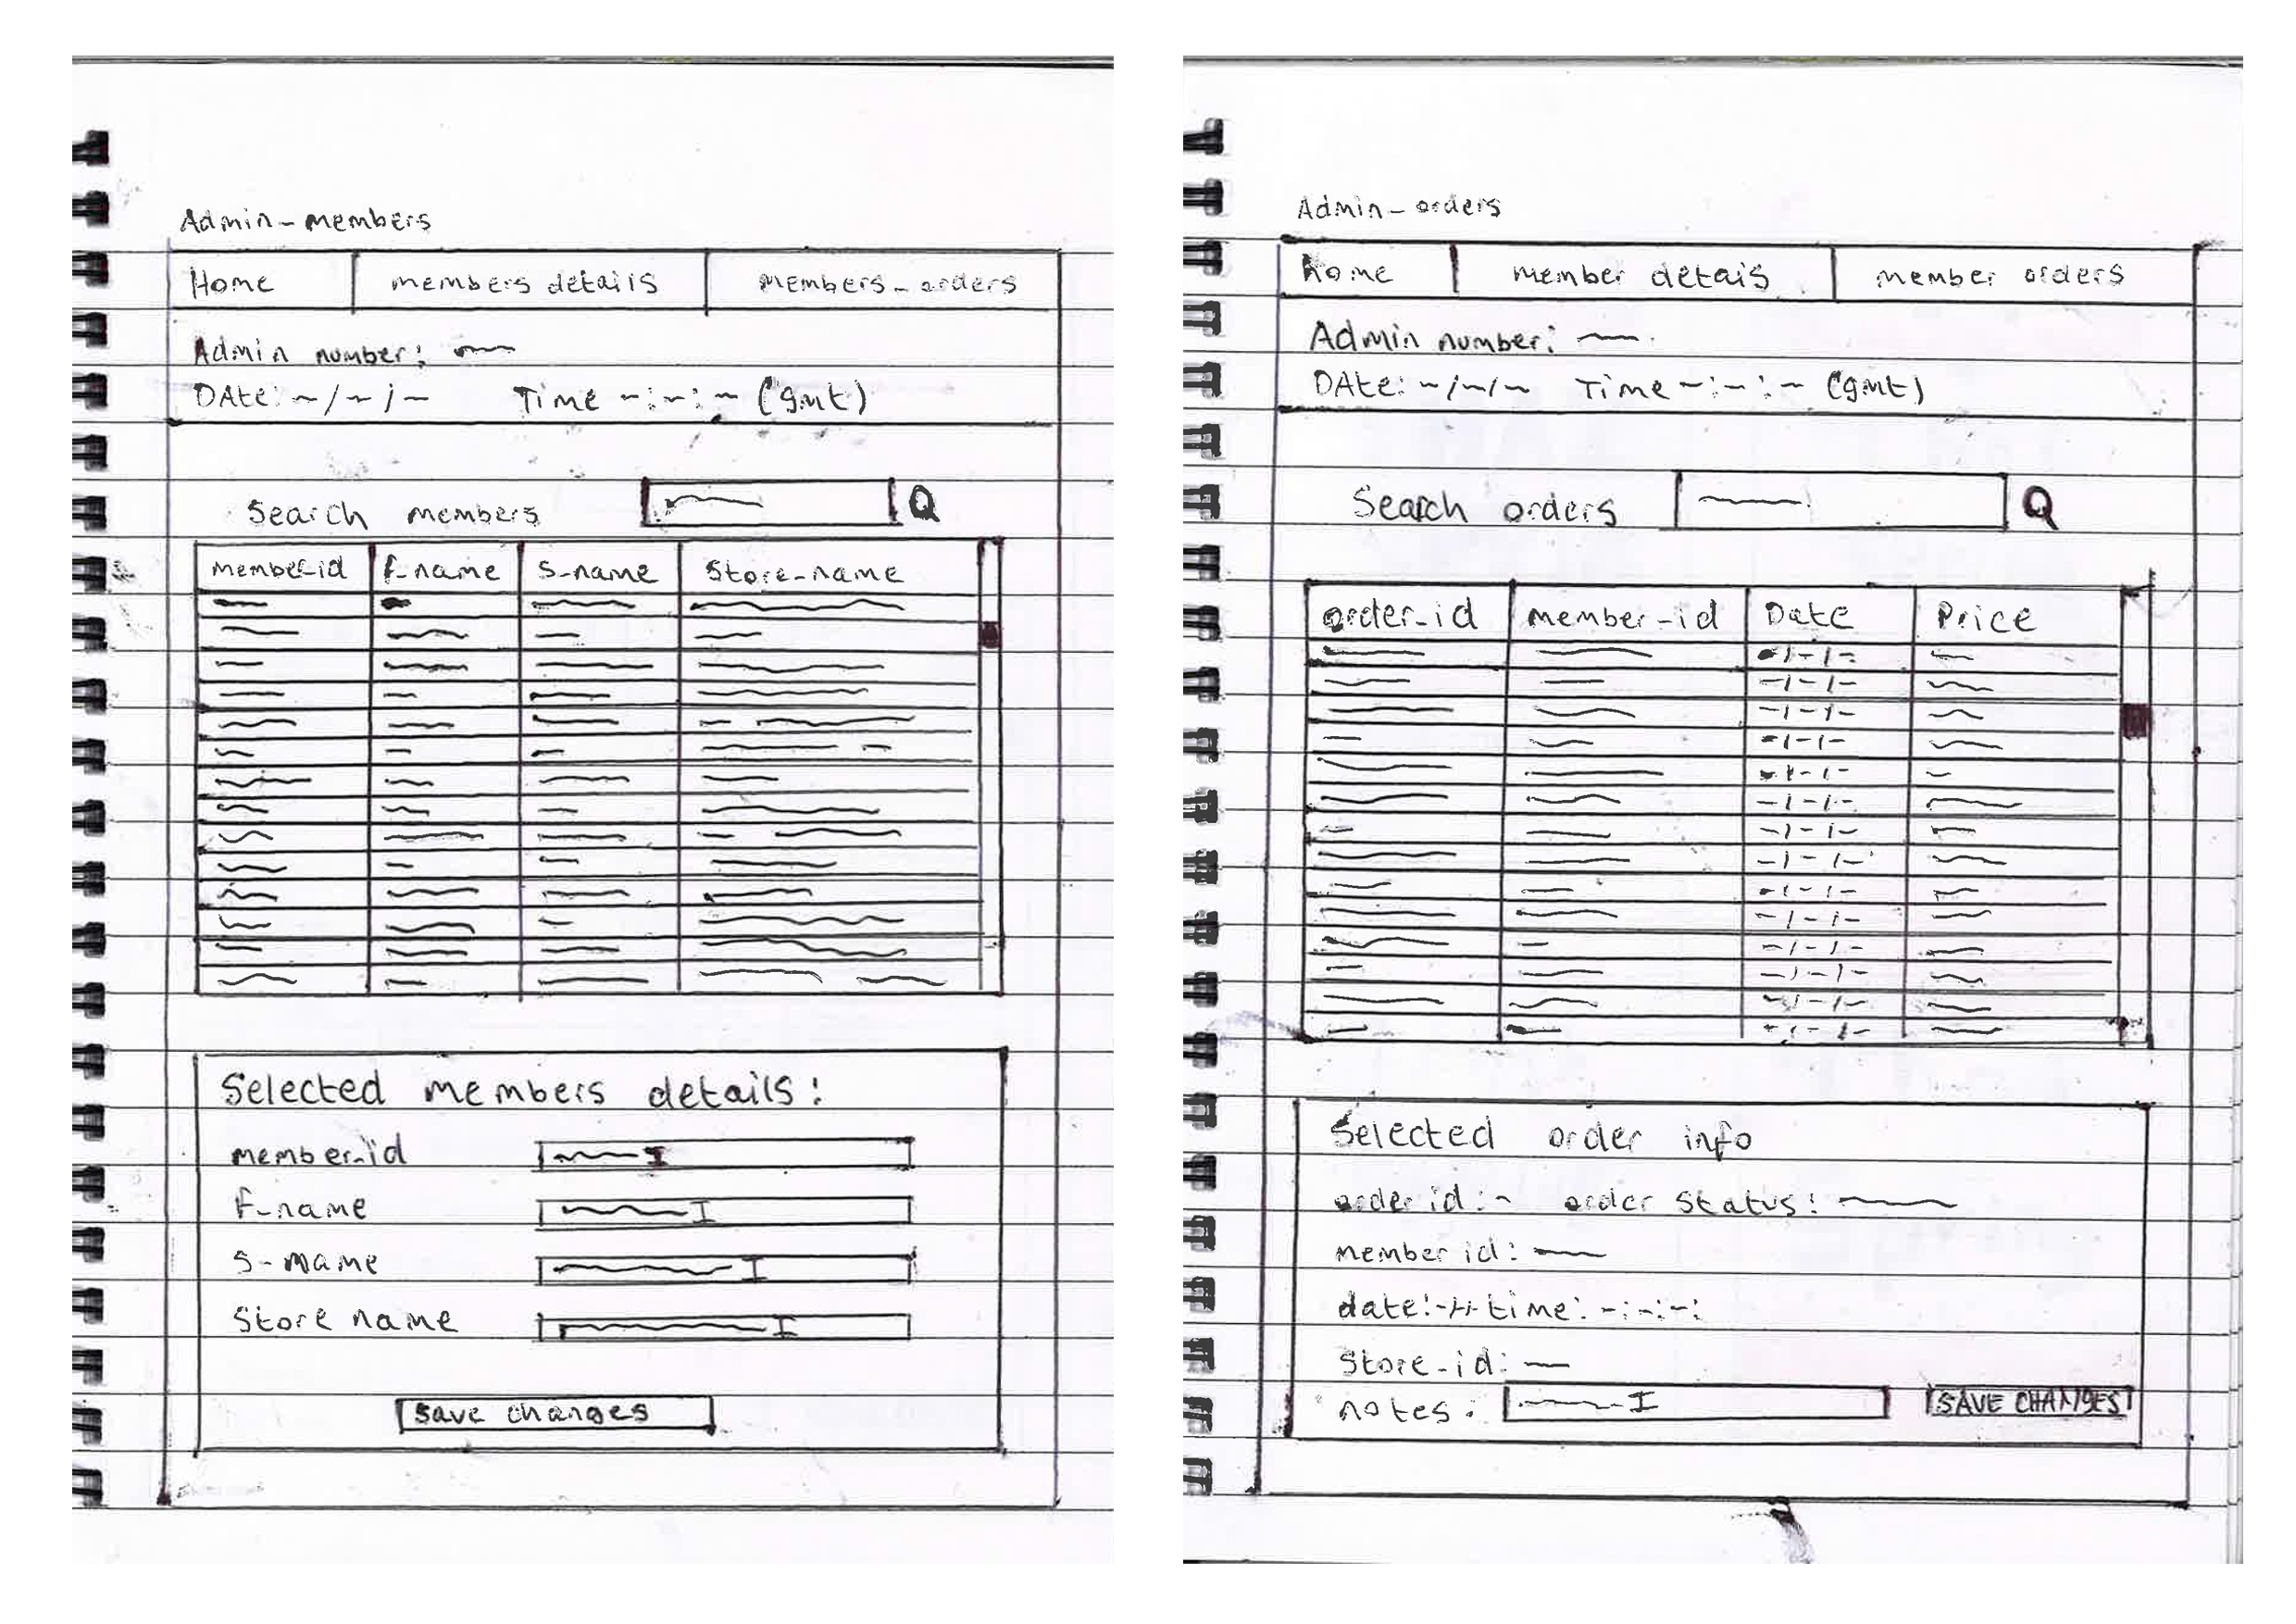 Admin-members
Home members details Members-orders
Admin number:
DAte: -/-/- Time -:-:- (gmt)
Search members Q
member-id f-name s-name Store-name
Selected members details:
member-id
f-name
s-name
Store name
save changes
Admin-orders
Home member detais member orders
Admin number:
DAte: -/-/- Time -:-:- (gmt)
Search orders Q
order-id member-id Date Price
-/-/-
-/-/-
-/-/-
-/-/-
-/-/-
-/-/-
-/-/-
-/-/-
-/-/-
-/-/-
-/-/-
-/-/-
-/-/-
-/-/-
Selected order info
order id: - order status:
member id:
date: -/-/- time: -:-:-:
Store-id:
notes: SAVE CHANGES